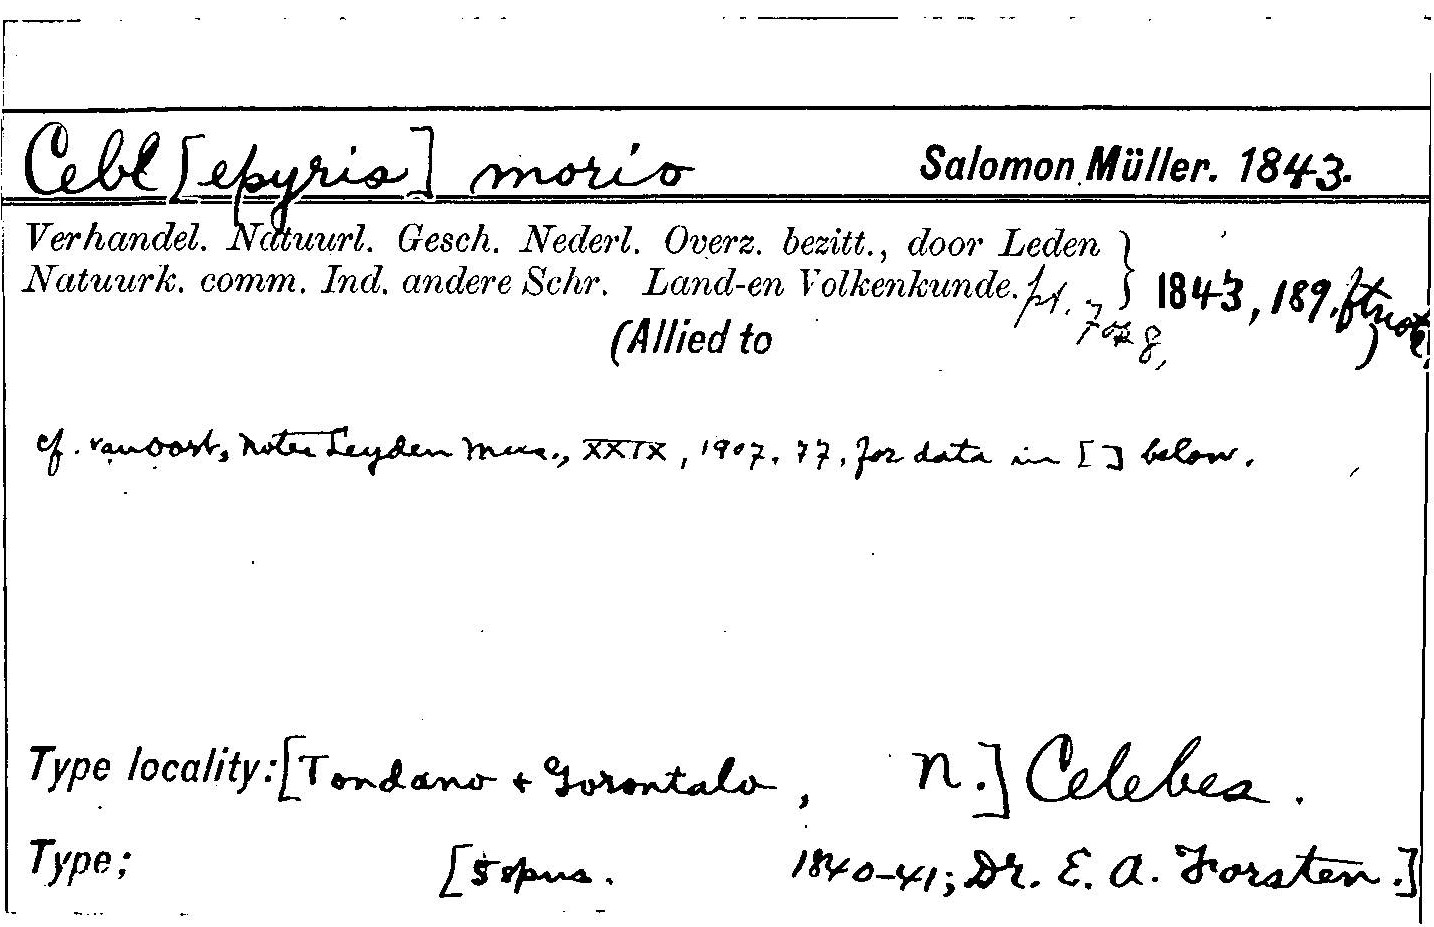 Cebl[epyris] morio Salomon Müller. 1843.
Verhandel. Natuurl. Gesch. Nederl. Overz. bezitt., door Leden
Natuurk. comm. Ind. andere Schr. Land-en Volkenkunde. pt. 7 } 1843, 189, ftnote,
(Allied to )
cf. van Oort, Notes Leyden Mus., XXIX, 1907, 77, for data in [ ] below.
Type locality: [Tondano + Gorontalo, N.] Celebes.
Type; [5 spns. 1840-41; Dr. E. A. Forsten.]